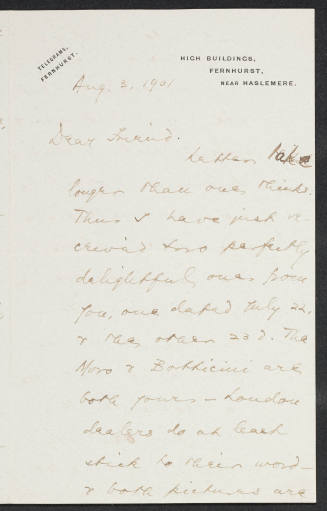 TELEGRAMS,
FERNHURST.
HIGH BUILDINGS,
FERNHURST,
NEAR HASLEMERE.
Aug. 3, 1901
Dear Friend.
Letters take
longer than one thinks.
Thus I have just re-
ceived two perfectly
delightful ones from
you, one dated July 22.
& the other 23d. The
Moro & Botticini are
both yours – London
dealers do at least
stick to their word –
& both pictures are